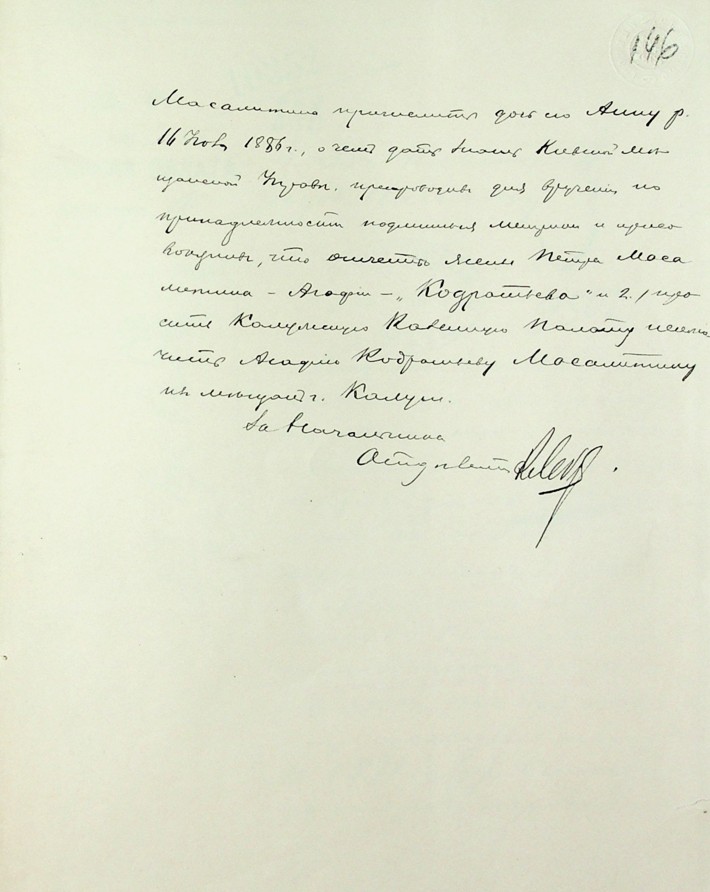 146
Масалитина причислить дочь его Анну р.
16 Ноя 1886 г., о чем дать знать Киевской Ме-
щанской Управы, препроводивъ для врученія по
принадлежности подлинныя и присо
вокупивъ, что отчество жены Петра Маса
литина – Агафіи – „Кодратьева" и 2/ про
сить Калужскую Казенную Палату исклю
чить Агафію Кодратьеву Масалитину
изъ мѣщанъ г. Калуги.
За Начальника
Отдѣленія